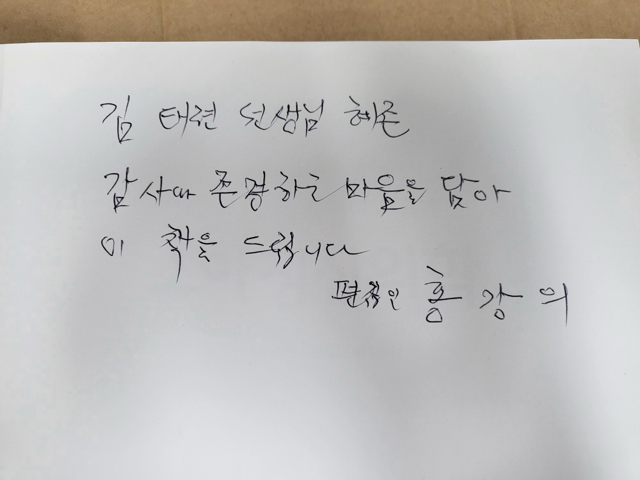 김 태련 선생님 혜존
감사와 존경하는 마음을 담아
이 책을 드립니다
편집인 홍 강 의